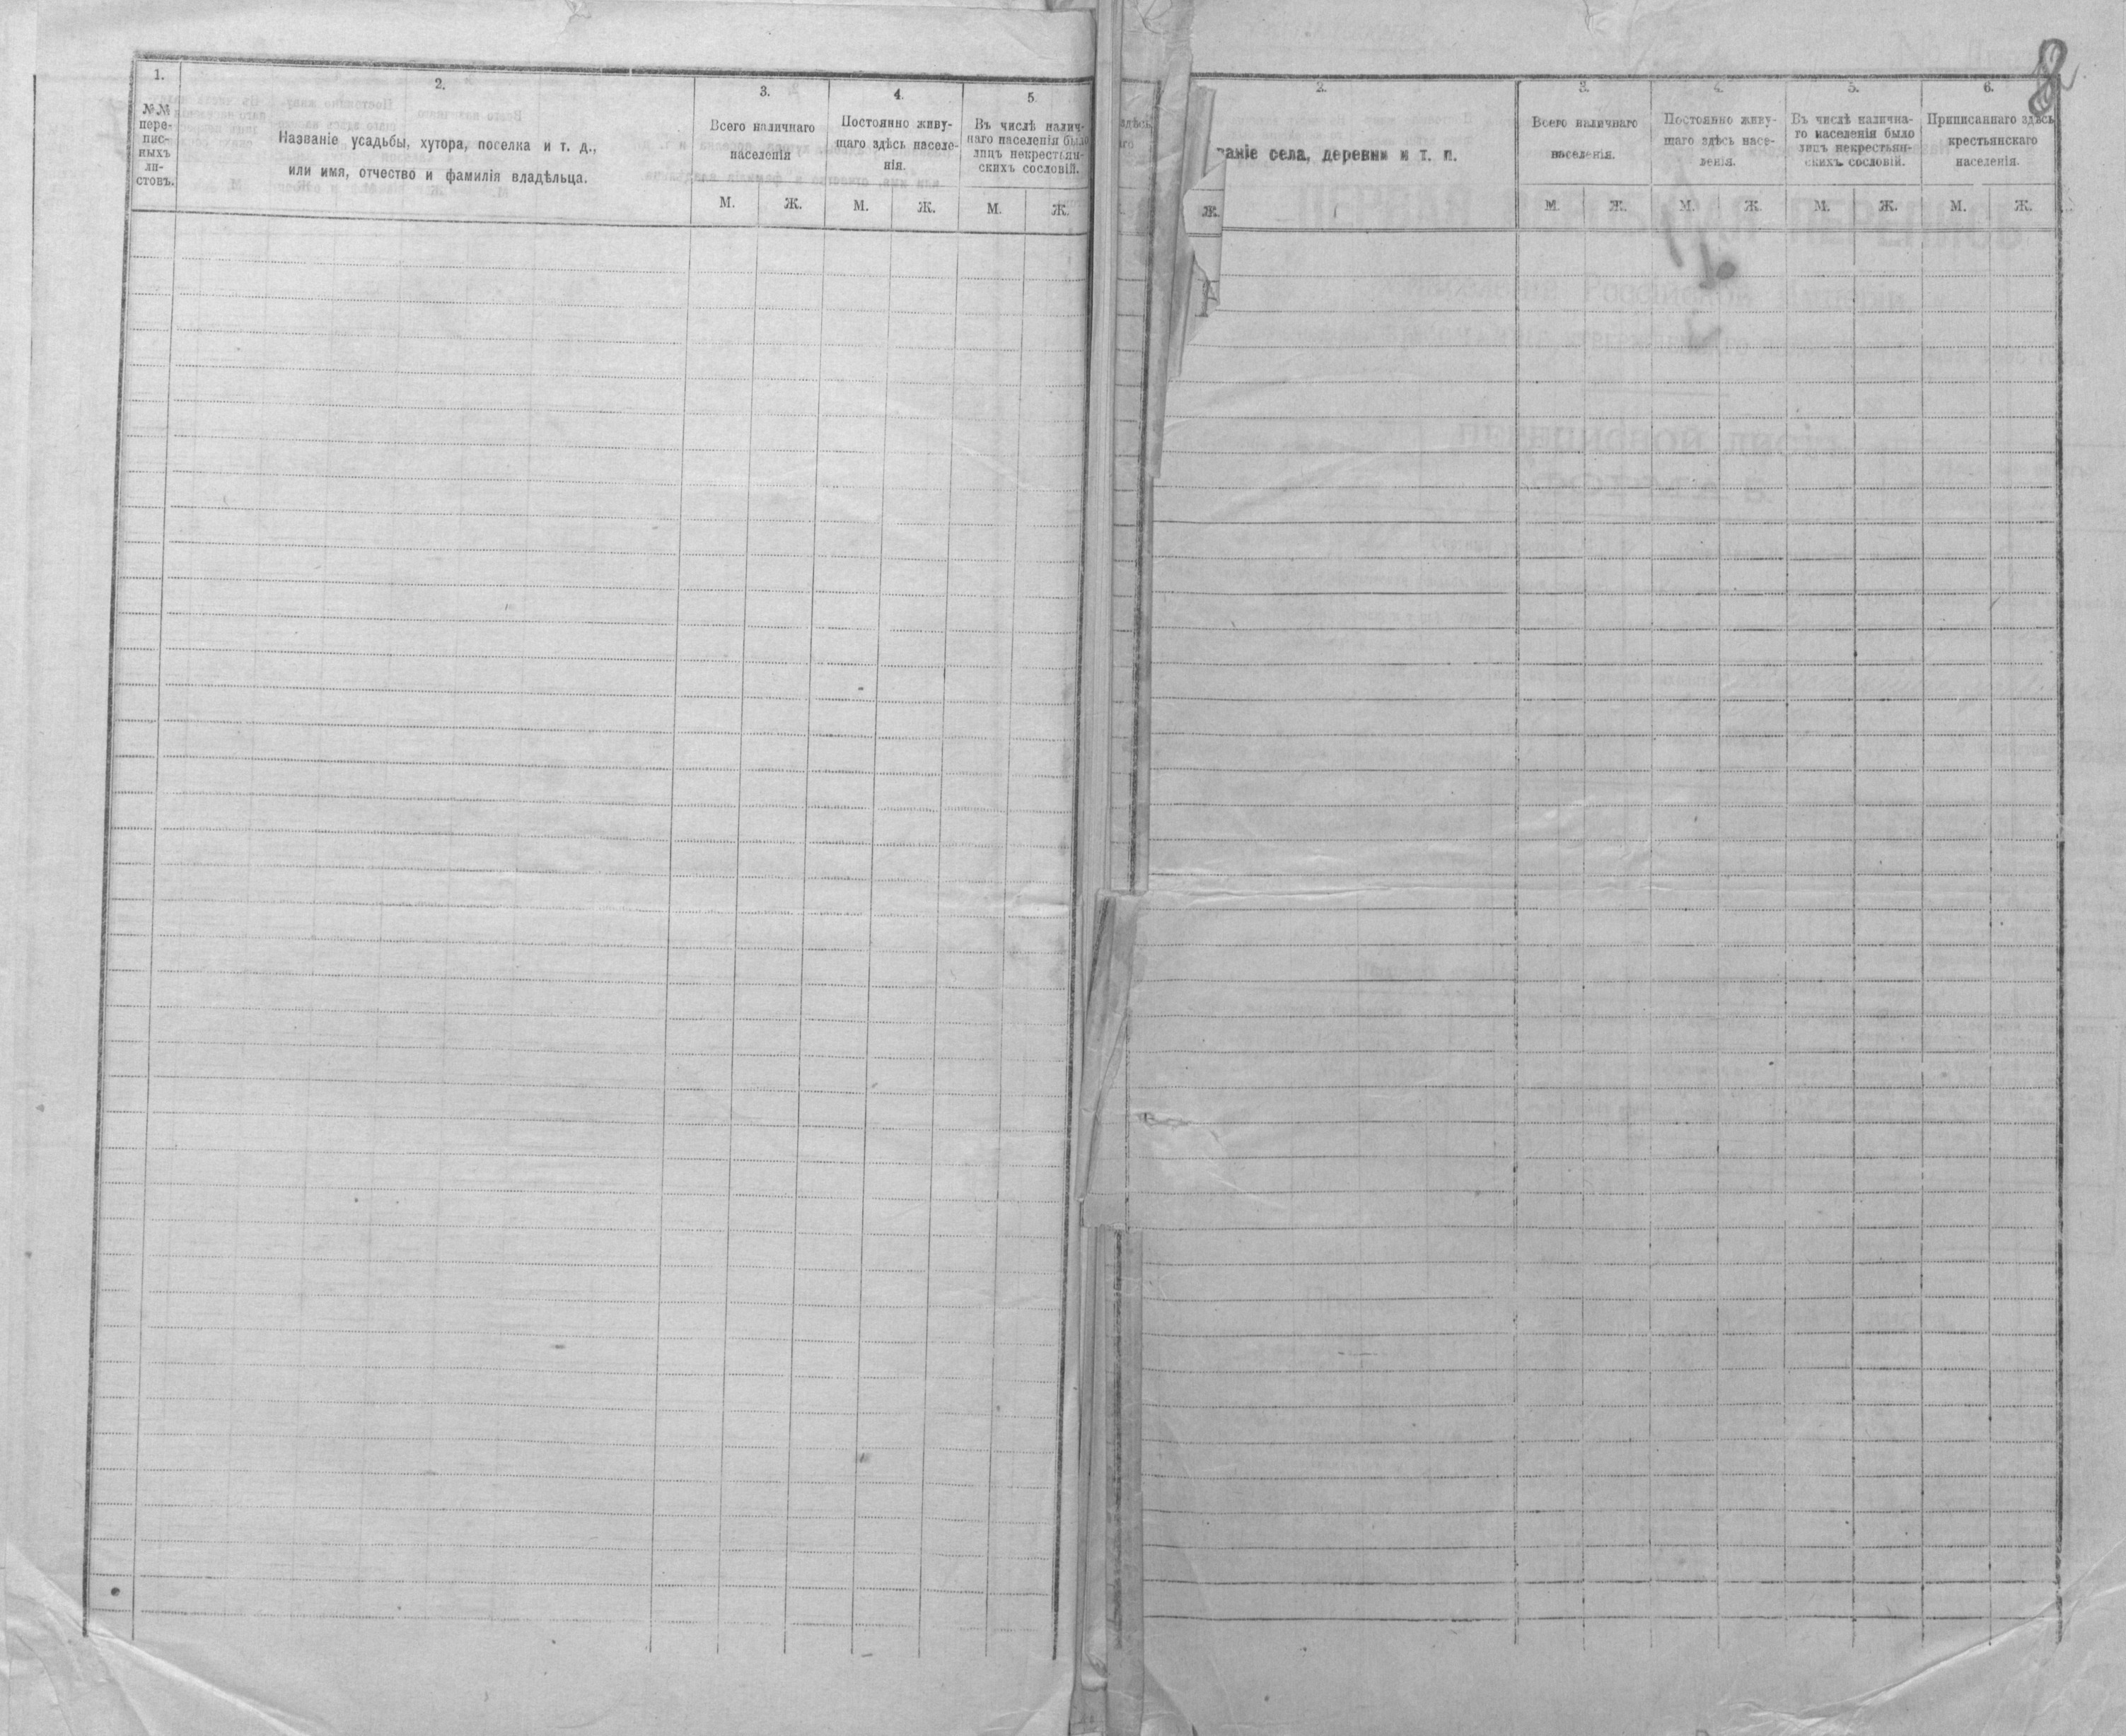 1.
№№
пере-
пис-
ныхъ
ли-
стовъ.
2.
Названіе усадьбы, хутора, поселка и т. д.,
или имя, отчество и фамилія владѣльца.
3.
Всего наличнаго
населенія
М. Ж.
4.
Постоянно живу-
щаго здѣсь населе-
нія.
М. Ж.
5.
Въ числѣ налич-
наго населенія было
лицъ некрестьян-
скихъ сословій.
М. Ж.
здѣсь
Ж.
8
2.
ваніе села, деревни и т. п.
3.
Всего наличнаго
населенія.
М. Ж.
4.
Постоянно живу-
щаго здѣсь насе-
ленія.
М. Ж.
5.
Въ числѣ налична-
го населенія было
лицъ некрестьян-
скихъ сословій.
М. Ж.
6.
Приписаннаго здѣсь
крестьянскаго
населенія.
М. Ж.